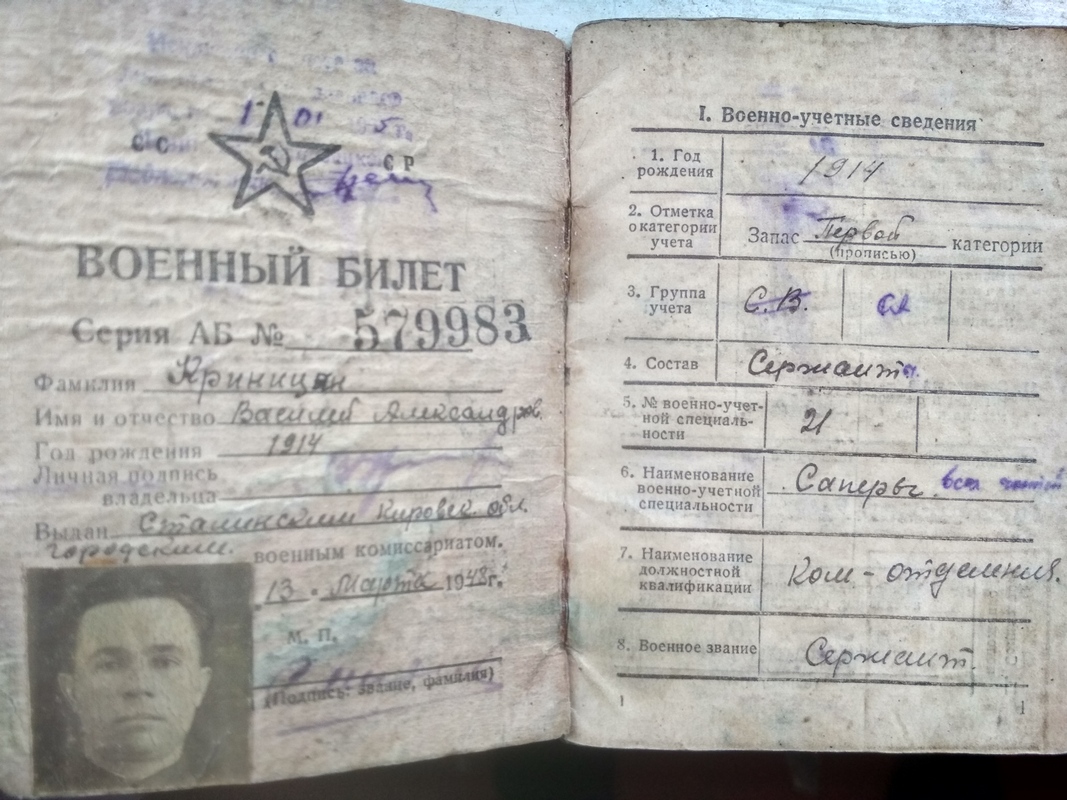 СС СР
ВОЕННЫЙ БИЛЕТ
Серия АБ № 579983
Фамилия Криницин
Имя и отчество Василий Александров.
Год рождения 1914
Личная подпись
владельца
Выдан Сталинским Кировск. обл.
городским. военным комиссариатом.
13 . Марта 1948г.
М. П.
(Подпись: звание, фамилия)
I. Военно-учетные сведения
1. Год
рождения
1914
2. Отметка
о категории
учета
Запас Первой категории
(прописью)
3. Группа
учета
С.В.
СА
4. Состав
Сержант
5. № военно-учет-
ной специаль-
ности
21
6. Наименование
военно-учетной
специальности
Саперы
7. Наименование
должностной
квалификации
Ком-отделения.
8. Военное звание
Сержант.
1